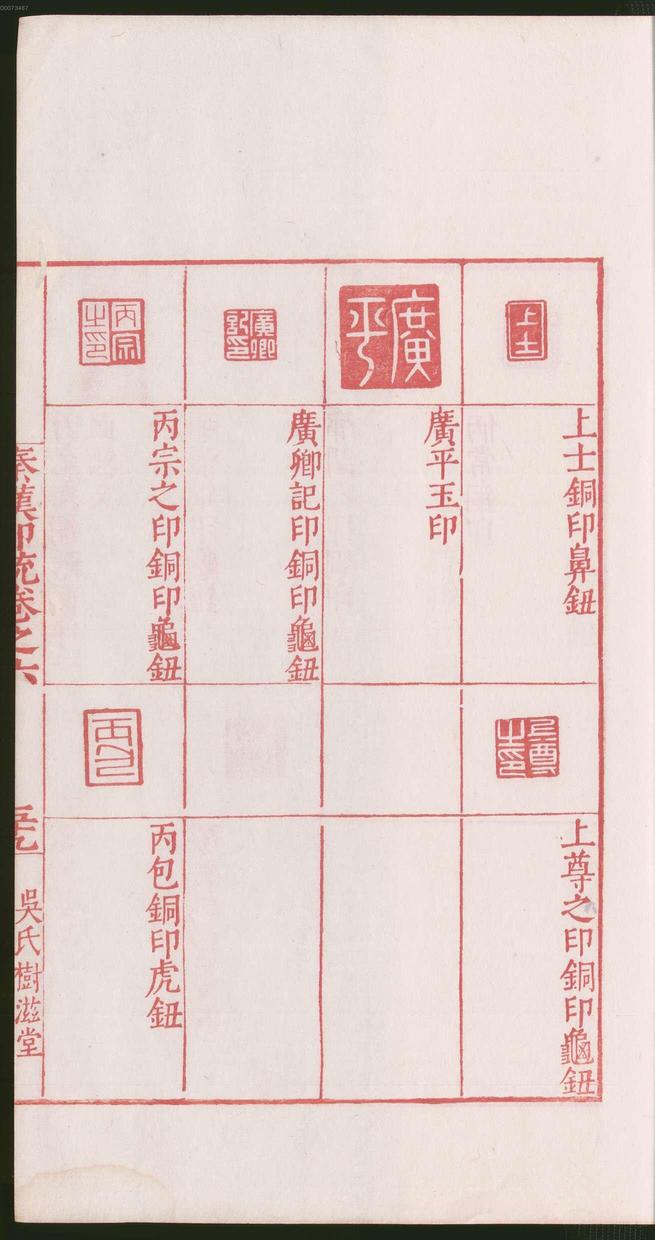 上士
上士銅印鼻鈕
上尊之印
上尊之印銅印龜鈕
廣平
廣平玉印
廣卿記印
廣卿記印銅印龜鈕
丙宗之印
丙宗之印銅印龜鈕
丙包
丙包銅印虎鈕
秦漢印統卷之六
吳氏樹滋堂
00073467